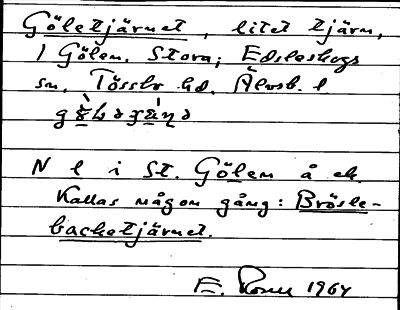 Göletjärnet, litet tjärn,
1 Gölen, Stora; Edsleskogs
sn, Tössbo hd. Älvsb. l
N l i St. Gölen å ek.
Kallas någon gång: Brösle-
backetjärnet.
E. 1964